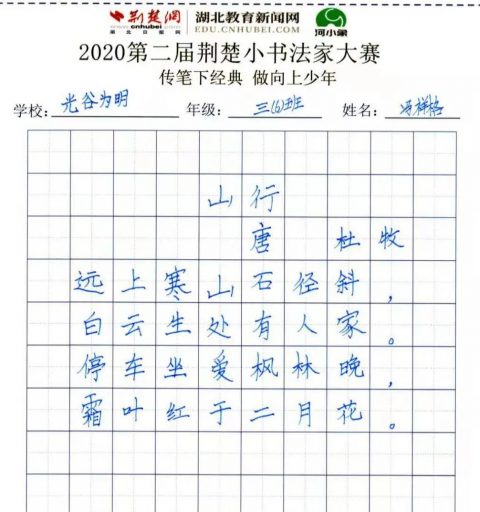 荆楚网 湖北教育新闻网
湖北日报网 EDU.CNHUBEI.COM 河小象
www.cnhubei.com
2020第二届荆楚小书法家大赛
传笔下经典 做向上少年
学校: 光谷为明 年级: 三(6)班 姓名: 冯祥格
山行
唐 杜牧
远上寒山石径斜,
白云生处有人家。
停车坐爱枫林晚,
霜叶红于二月花。